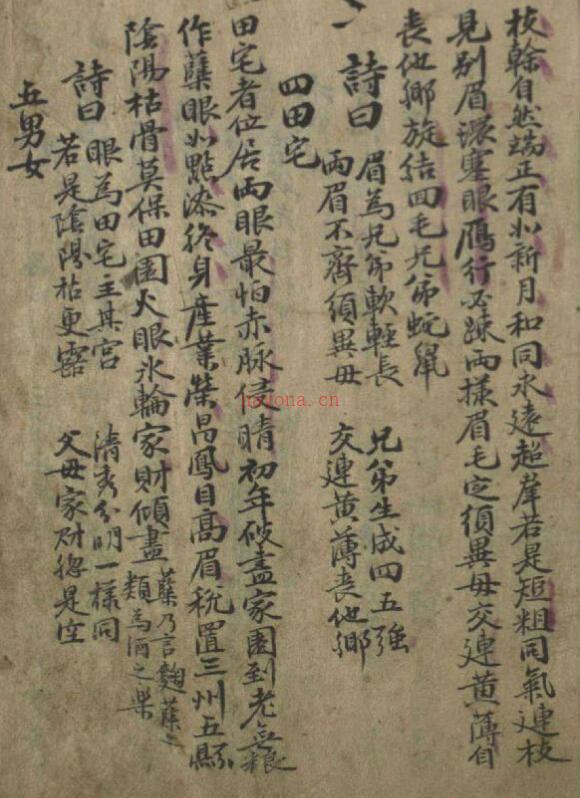 枝幹自然端正有如新月和同永遠超群若是短粗同氣連枝
見別眉濃塞眼鴈行必踈兩樣眉毛定須異母交連黃薄自
丧他鄉旋結回毛兄弟蛇鼠
詩曰 眉為兄弟軟輕長 兄弟生成四五强
兩眉不齊須異母 交連黃薄丧他鄉
四田宅
田宅者位居兩眼最怕赤脉侵睛初年破盡家園到老無粮
作蘖眼如點漆終身產業榮昌鳳目高眉稅置三州五縣
陰陽枯骨莫保田園火眼氷輪家財傾盡
蘖乃言麴蘖之
類為酒之
詩曰 眼為田宅主其宮 清秀分明一樣同
若是陰陽枯更露 父母家財捴是空
五男女